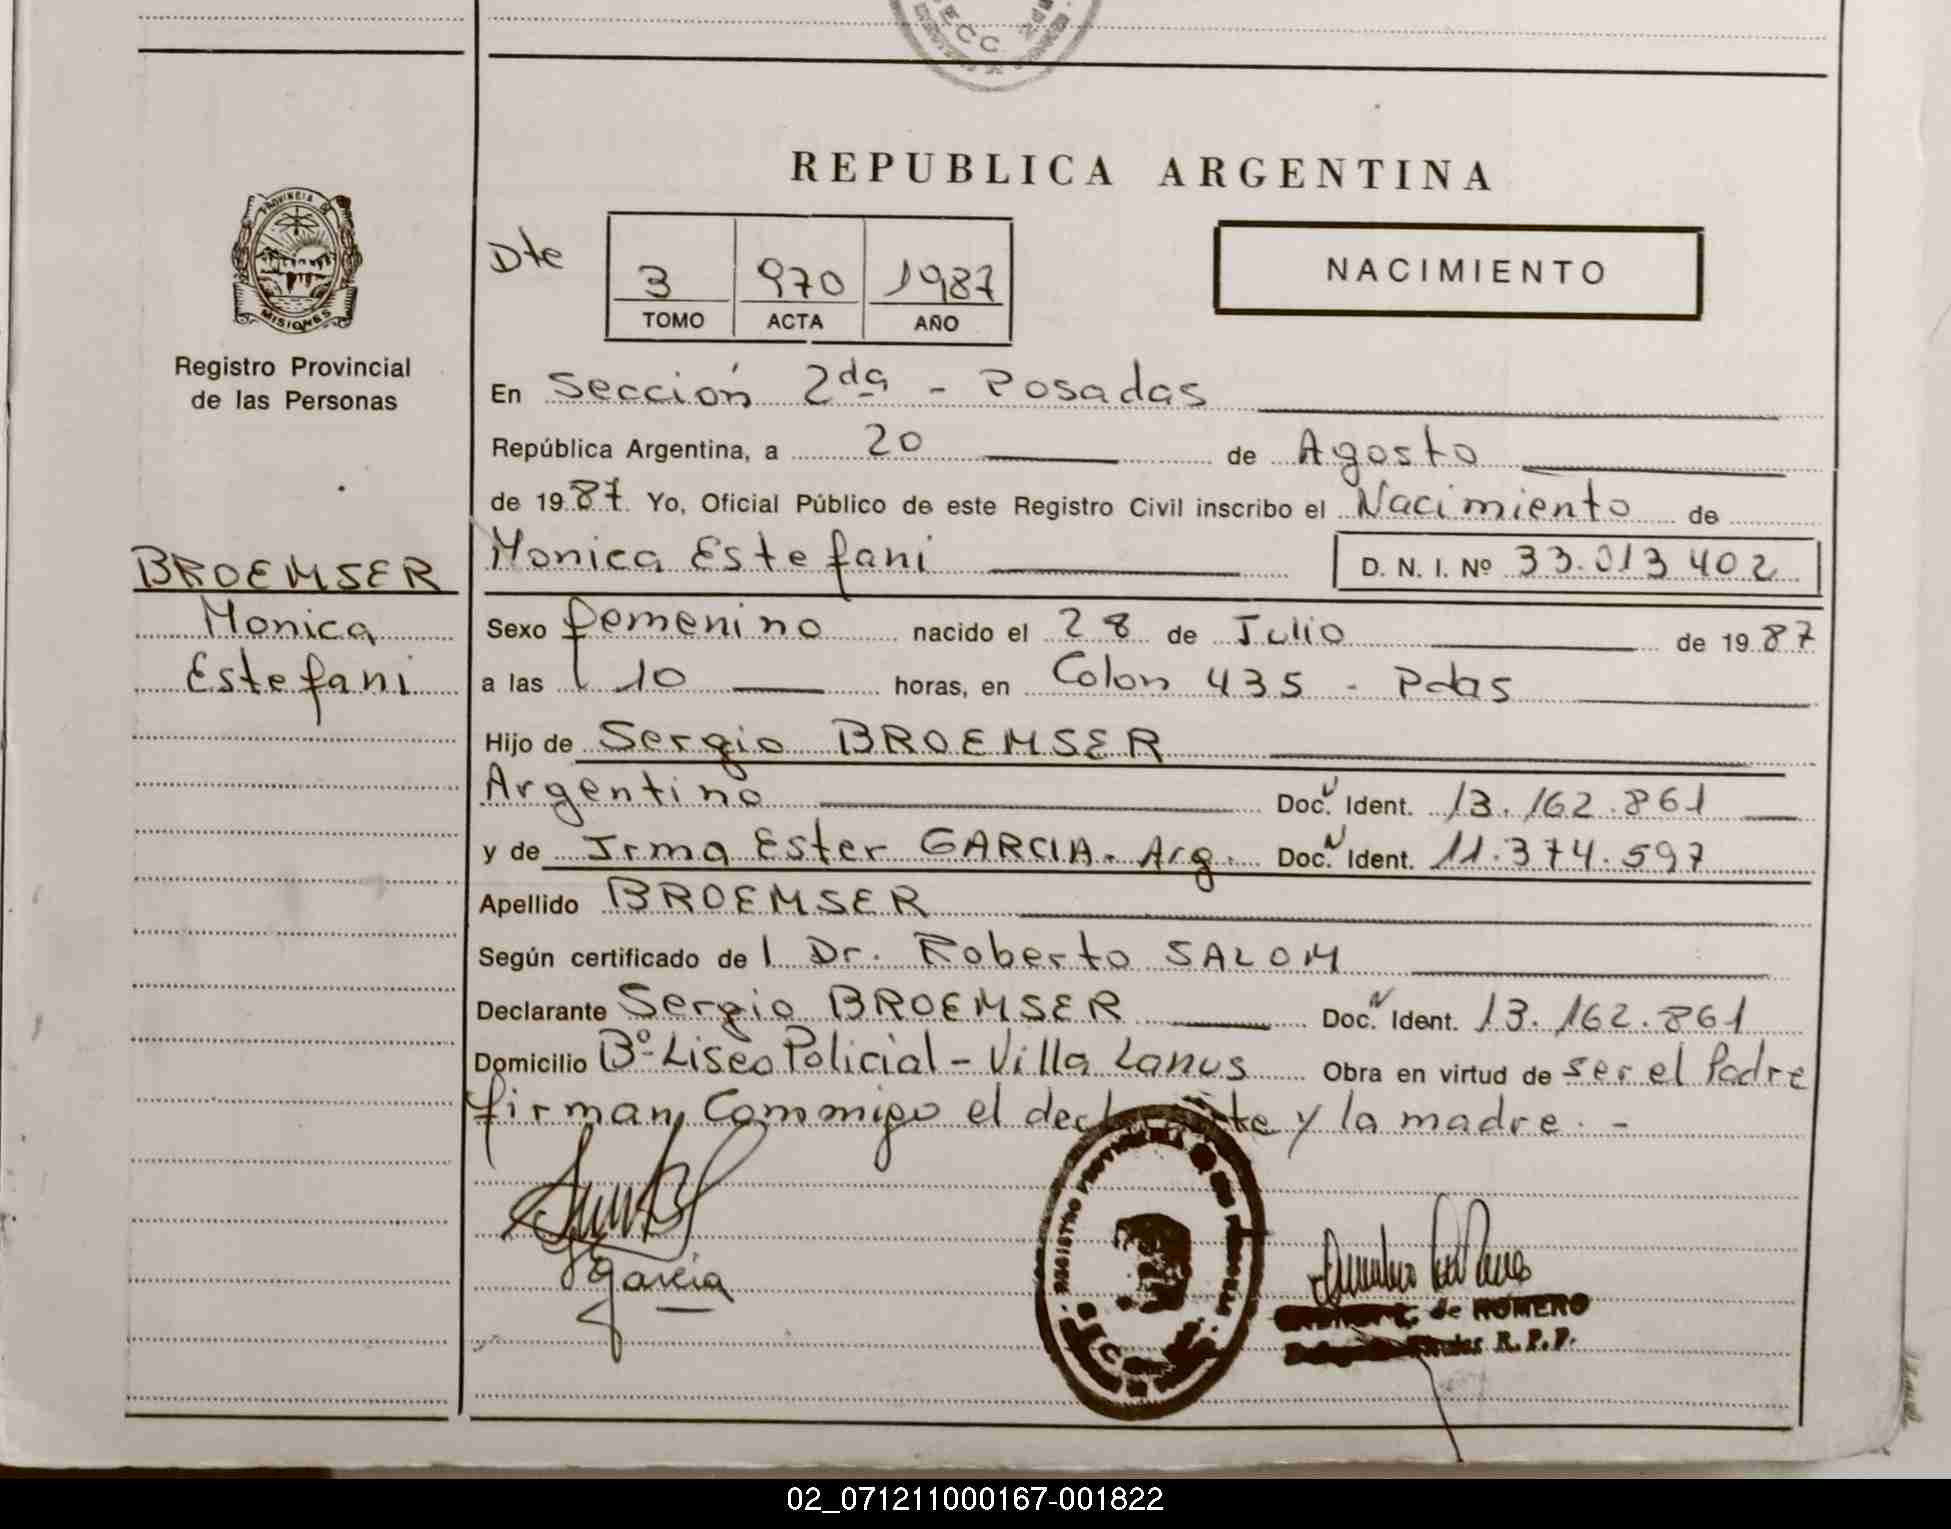 REPUBLICA ARGENTINA
PROVINCIA DE
MISIONES
Registro Provincial
de las Personas
BROEMSER
Monica
Estefani
Dte
3 970 1987
TOMO ACTA AÑO
NACIMIENTO
En Sección 2da - Posadas
República Argentina, a 20 de Agosto
de 1987. Yo, Oficial Público de este Registro Civil inscribo el Nacimiento de
Monica Estefani D. N. I. Nº 33.013402
Sexo femenino nacido el 28 de Julio de 1987
a las 10 horas, en Colon 435 - Pdas
Hijo de Sergio BROEMSER
Argentino Doc. Ident. 13.162.861
y de Irma Ester GARCIA. Arg. Doc. Ident. 11.374.597
Apellido BROEMSER
Según certificado del Dr. Roberto SALOM
Declarante Sergio BROEMSER Doc. Ident. 13.162.861
Domicilio Bº Liseo Policial - Villa Lanus Obra en virtud de ser el Padre
firman Commigo el declarante y la madre. -
Garcia
REGISTRO PROVINCIAL DE LAS PERSONAS
SECC
de ROMERO
R. P. P.
02_071211000167-001822